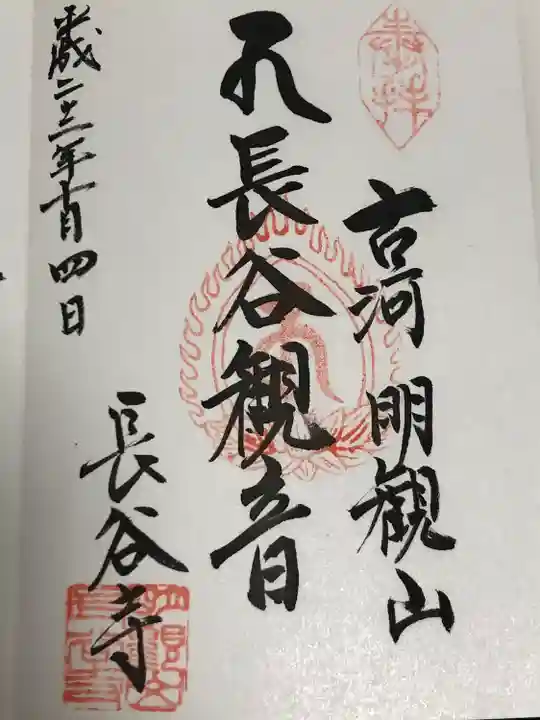 奉拝
古河 明観山
長谷観音
平成二十三年十月四日
長谷寺